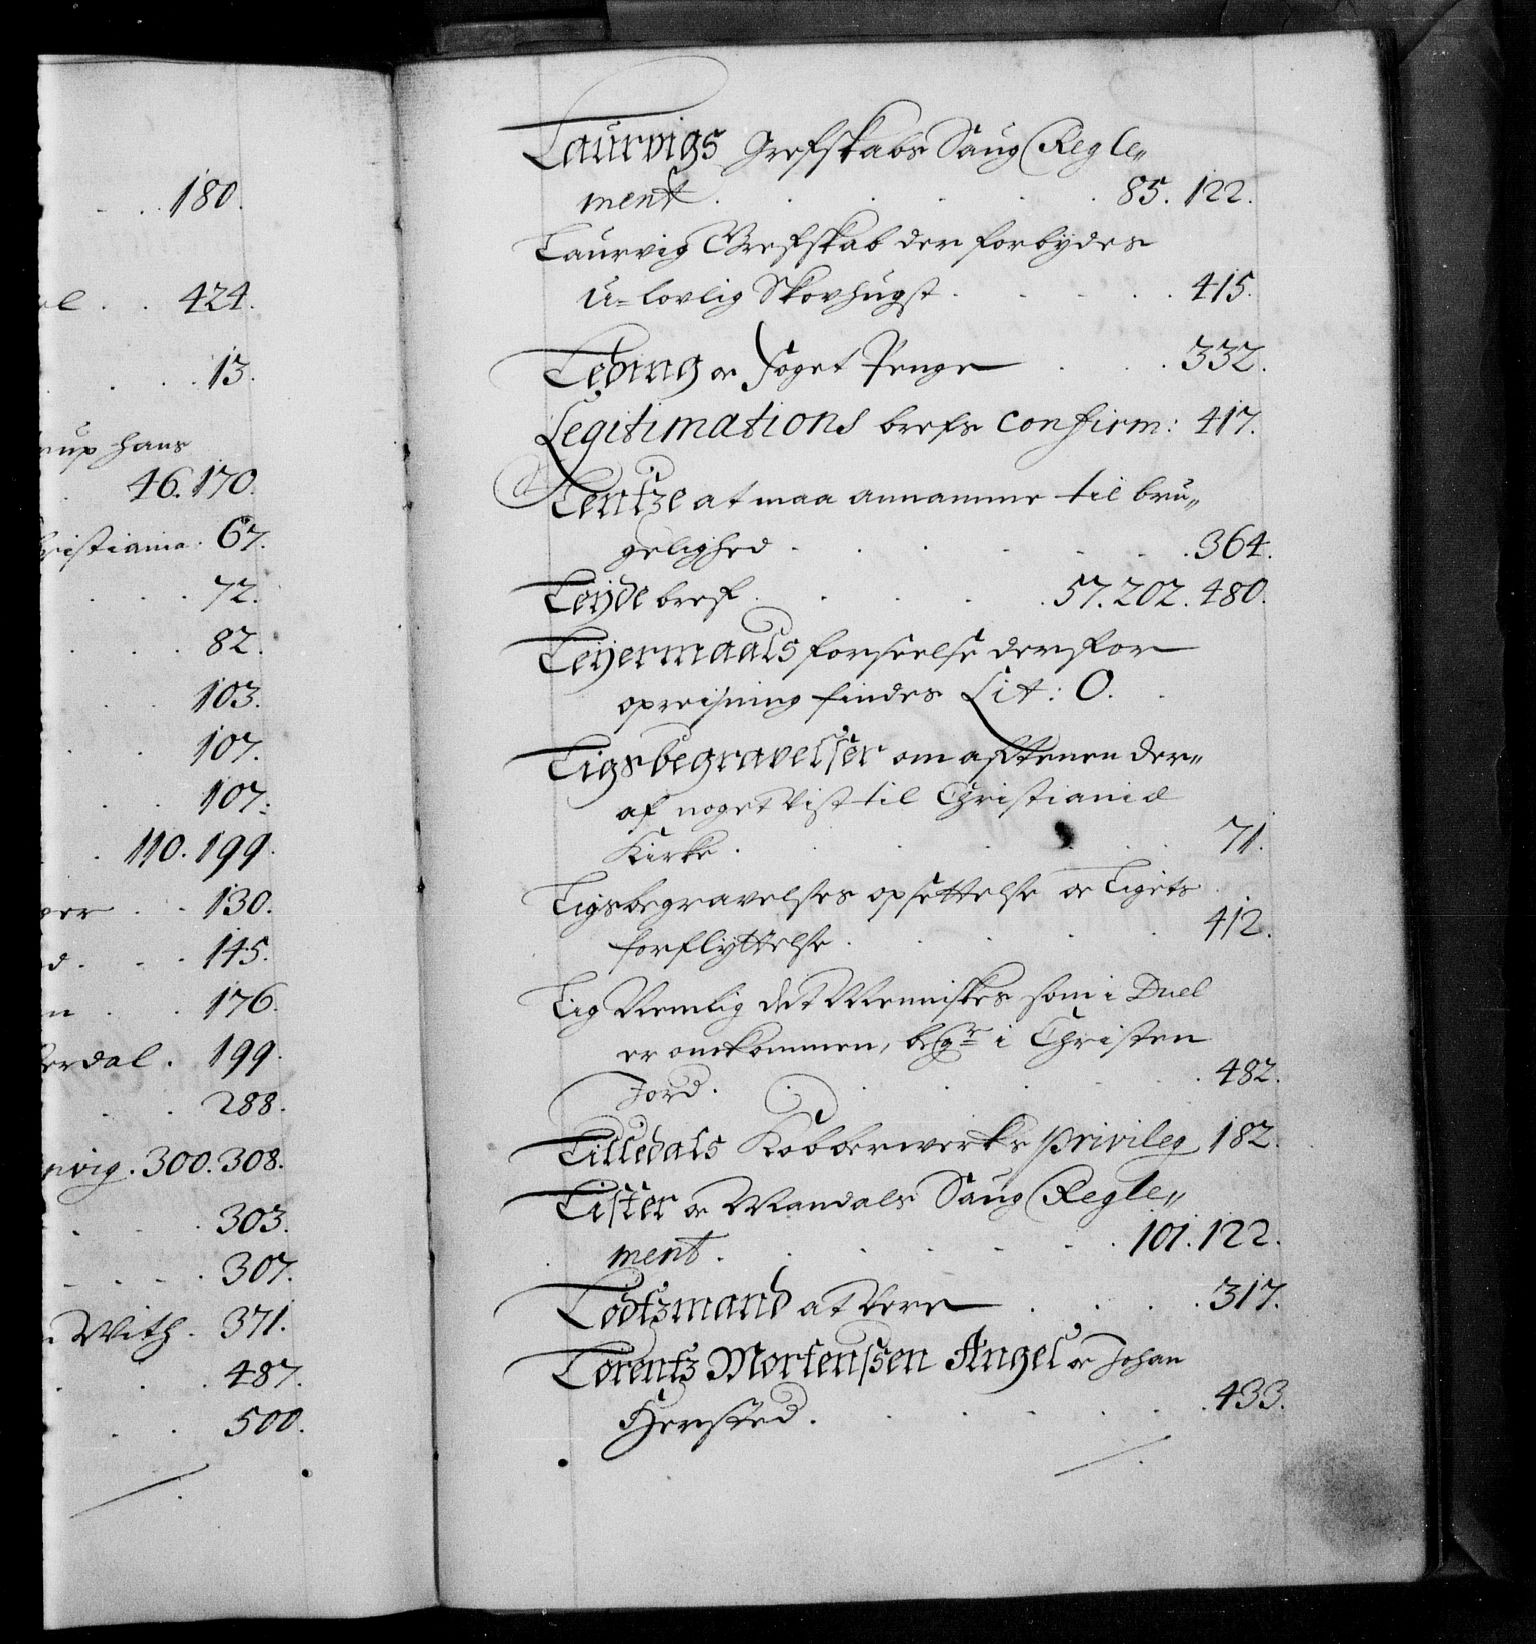 180.
424.
13.
rup hans
46. 170.
hristiania. 67.
72.
82.
103.
107.
107.
110. 199.
130.
145.
176.
erdal. 199.
288.
rvig. 300. 308.
303.
307.
With. 371.
487.
500.
Laurvigs Grefskabs Saug Regle„
ment . . . . . 85. 122.
Laurvig Grefskab der forbydes
u-lovlig Skovhugst . . . . 415.
Leding oc foget Penge . . . 332.
Legitimations brefs Confirm: 417.
Lentze at maa annamme til bru„
gelighed . . . . . 364.
Leyde bref . . . . 57. 202. 480.
Leyermaals forseelse derfor
opreisning findes Lit: O.
Ligsbegravelser om aftenen der„
af noget vist til Christianiæ
Kirke . . . . . 71.
Ligsbegravelses opsettelse oc Ligets
forflyttelse . . . . 412.
Lig Nemlig det Menniskes som i Duel
er omkommen, begr i Christen
Jord . . . . . 482.
Lilledals Kobberwerks Privileg 182.
Lister oc Mandals Saug Regle„
ment . . . . . 101. 122.
Lodtzmand at vere . . . . 317.
Lorentz Mortenssen Angel oc Johan
Hersted . . . . . 433.